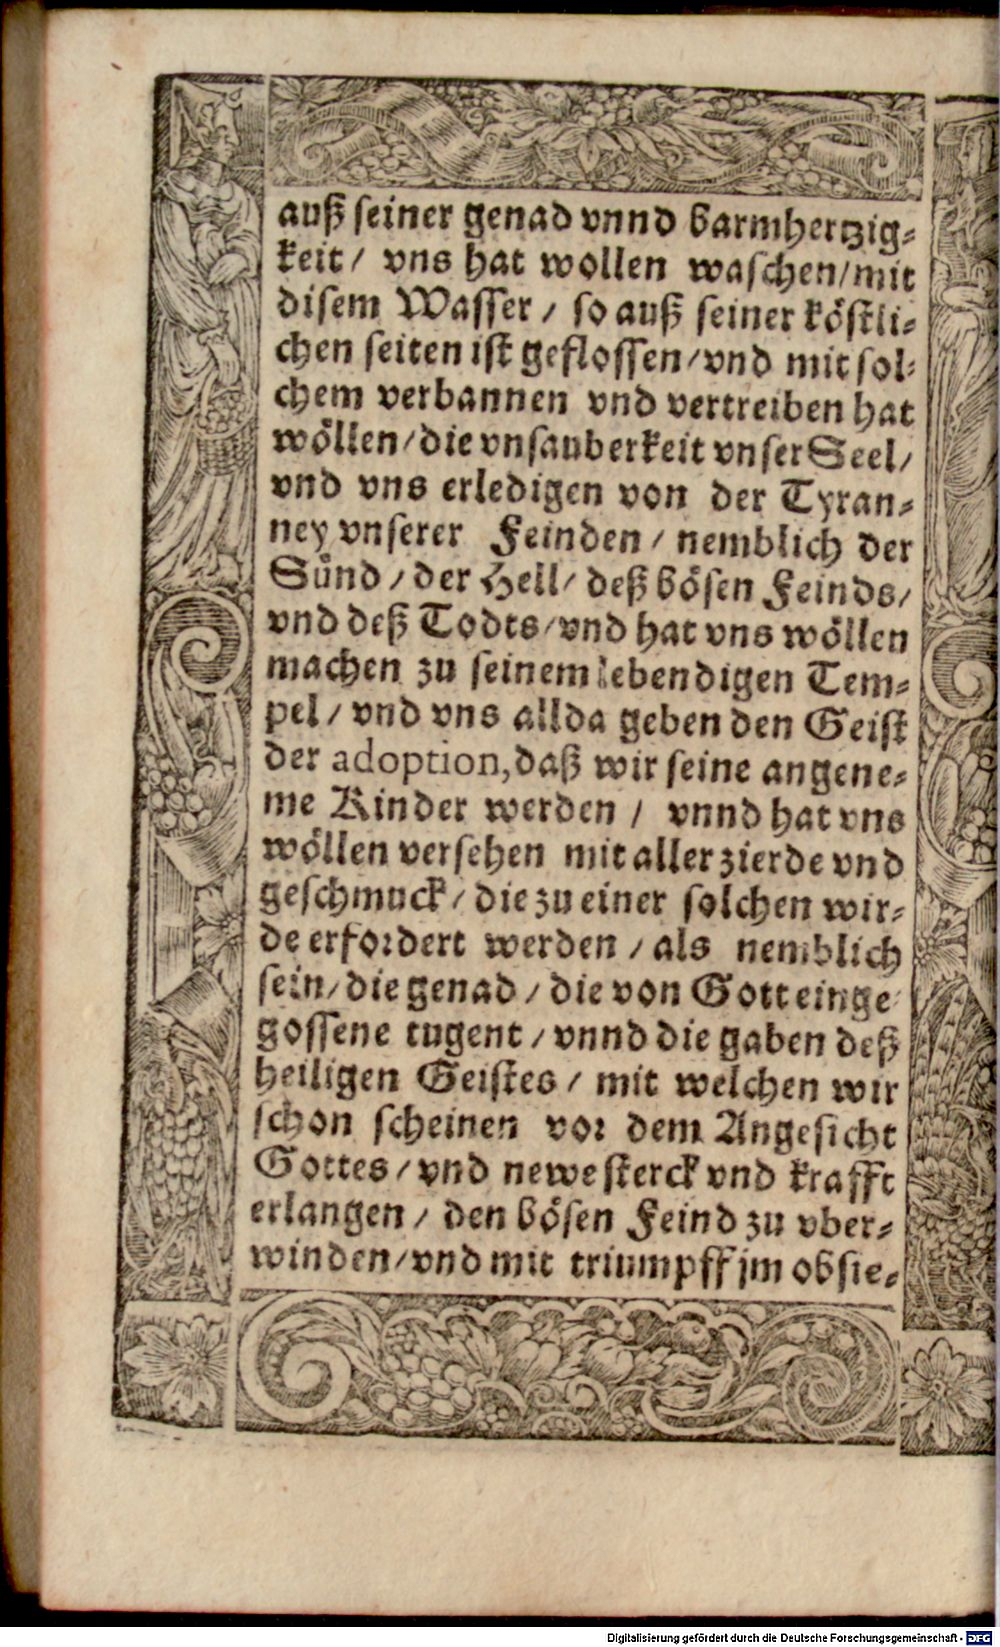 auß seiner genad vnnd barmhertzig-
keit / vns hat wollen waschen/mit
disem Wasser / so auß seiner köstli-
chen seiten ist geflossen/vnd mit sol-
chem verbannen vnd vertreiben hat
wöllen/die vnsauberkeit vnser Seel/
vnd vns erledigen von der Tyran-
ney vnserer Feinden / nemblich der
Sünd / der Hell/ deß bösen Feinds/
vnd deß Todts/vnd hat vns wöllen
machen zu seinem lebendigen Tem-
pel / vnd vns allda geben den Geist
der adoption, daß wir seine angene-
me Kinder werden / vnnd hat vns
wöllen versehen mit aller zierde vnd
geschmuck / die zu einer solchen wir-
de erfordert werden / als nemblich
sein/die genad / die von Gott einge
gossene tugent / vnnd die gaben deß
heiligen Geistes / mit welchen wir
schon scheinen vor dem Angesicht
Gottes / vnd newe sterck vnd krafft
erlangen / den bösen Feind zu vber-
winden/vnd mit triumpff jm obsie-
Digitalisierung gefördert durch die Deutsche Forschungsgemeinschaft - DFG